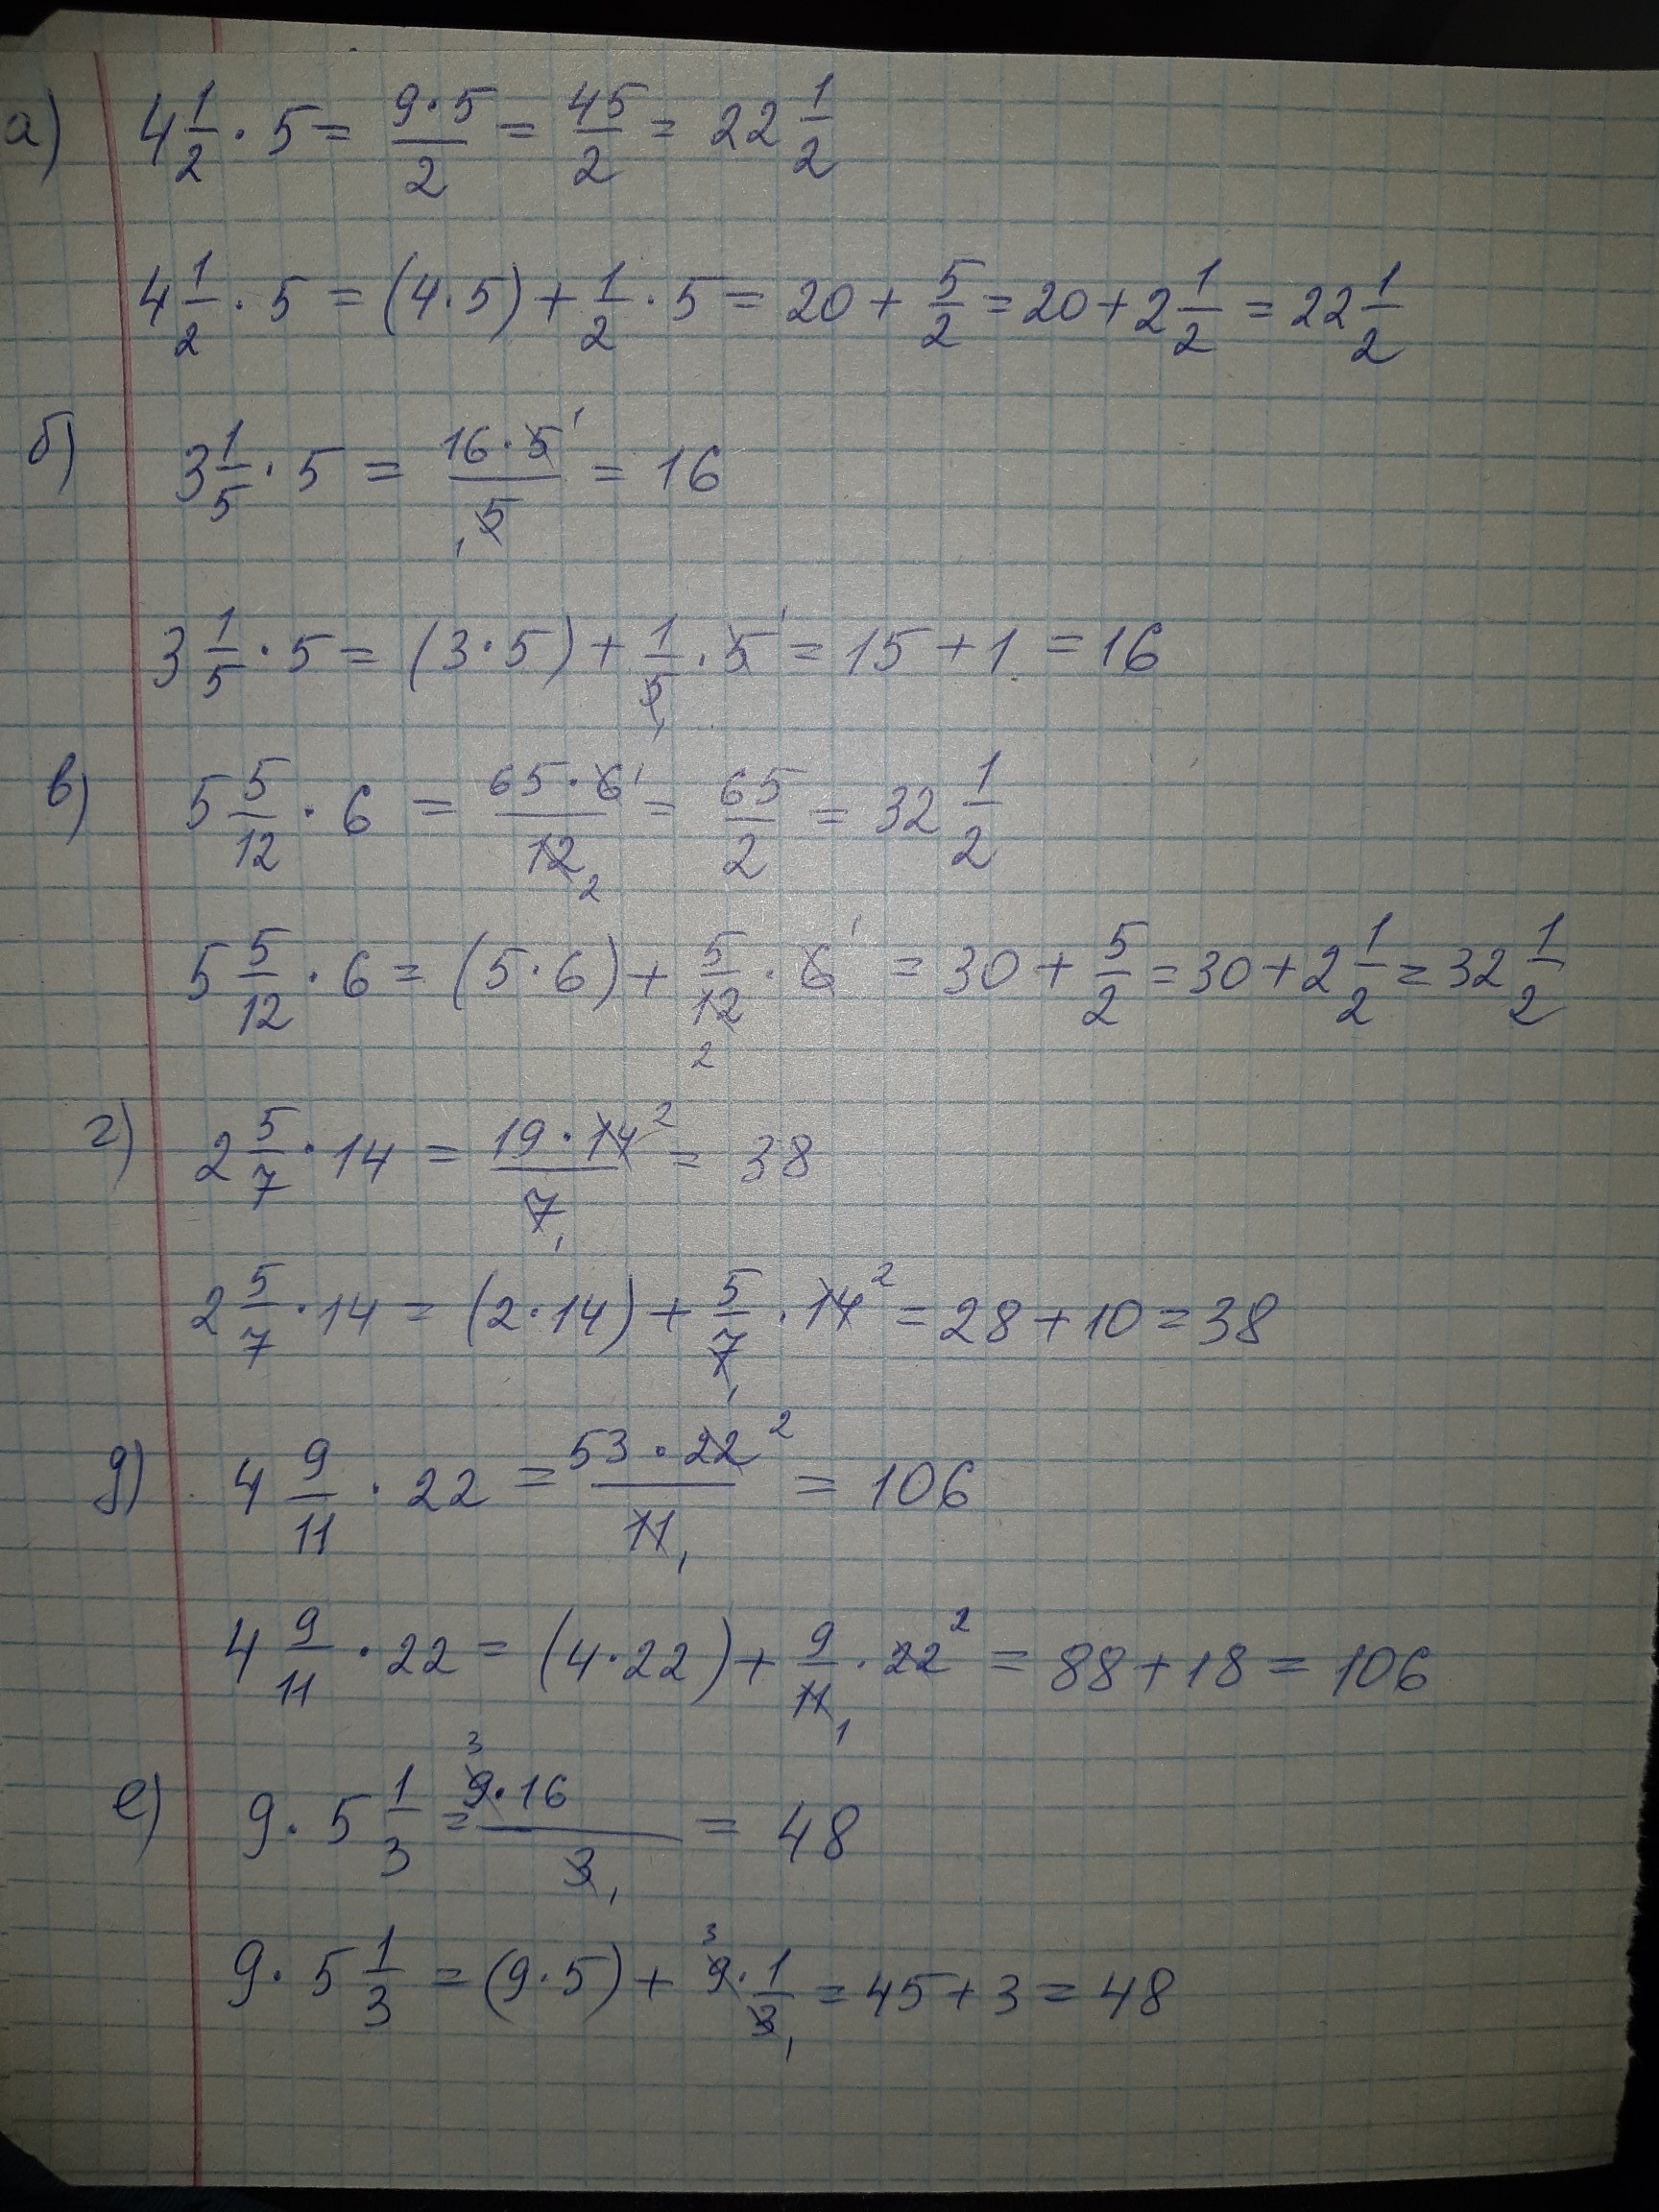 а) 4 1/2 · 5 = 9·5/2 = 45/2 = 22 1/2
4 1/2 · 5 = (4·5) + 1/2 · 5 = 20 + 5/2 = 20 + 2 1/2 = 22 1/2
б) 3 1/5 · 5 = 16·5¹/₁5 = 16
3 1/5 · 5 = (3·5) + 1/5₁ · 5¹ = 15 + 1 = 16
в) 5 5/12 · 6 = 65·6¹/12₂ = 65/2 = 32 1/2
5 5/12 · 6 = (5·6) + 5/12₂ · 6¹ = 30 + 5/2 = 30 + 2 1/2 = 32 1/2
г) 2 5/7 · 14 = 19·14²/7₁ = 38
2 5/7 · 14 = (2·14) + 5/7₁ · 14² = 28 + 10 = 38
д) 4 9/11 · 22 = 53·22²/11₁ = 106
4 9/11 · 22 = (4·22) + 9/11₁ · 22² = 88 + 18 = 106
е) 9 · 5 1/3 = ³9·16/3₁ = 48
9 · 5 1/3 = (9·5) + ³9 · 1/3₁ = 45 + 3 = 48